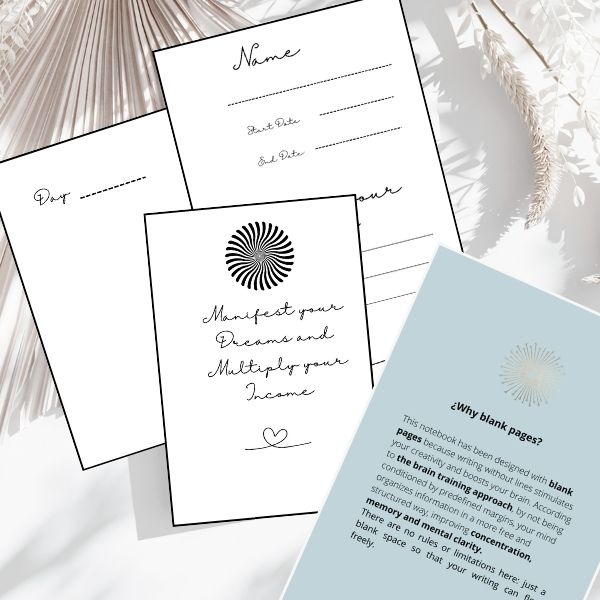 Name
Start Date
End Date
Day
your
Manifest your
Dreams and
Multiply your
Income
¿Why blank pages?
This notebook has been designed with blank
pages because writing without lines stimulates
your creativity and boosts your brain. According
to the brain training approach, by not being
conditioned by predefined margins, your mind
organizes information in a more free and
structured way, improving concentration,
memory and mental clarity.
There are no rules or limitations here: just a
blank space so that your writing can
freely.